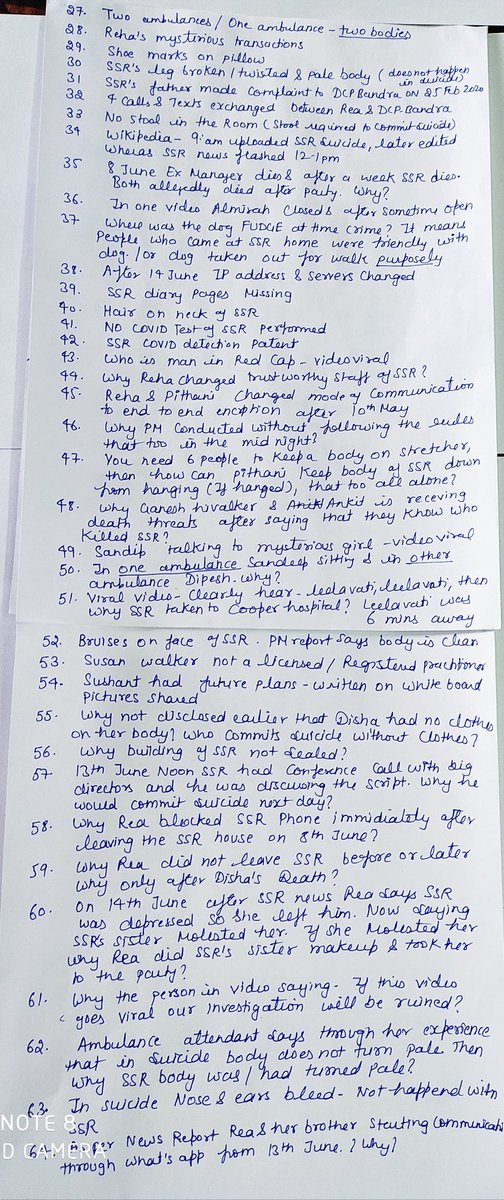 27. Two ambulances/ One ambulance - two bodies
28. Reha's mysterious transactions
29. Shoe marks on pillow
30 SSR's leg broken/twisted & pale body (does not happen
in suicide)
31 SSR's father made complaint to DCP Bandra ON 25 Feb 2020
32 4 Calls & Texts exchanged between Rea & DCP-Bandra
33 No stool in the Room (Stool required to commit suicide)
34 Wikipedia - 9:am uploaded SSR suicide, later edited
wheras SSR news flashed 12-1pm
35 8 June Ex Manager dies & after a week SSR dies.
Both allegedly died after party. Why?
36. In one video Almirah closed & after sometime open
37 Where was the dog FUDGE at time crime? It means
people who came at SSR home were friendly with
dog. /or dog taken out for walk purposely
38. After 14 June IP address & servers changed
39. SSR diary pages Missing
40. Hair on neck of SSR
41. NO COVID Test of SSR performed
42. SSR COVID detection patent
43. Who is man in Red Cap - video viral
44. Why Reha changed trustworthy staff of SSR?
45. Reha & Pithani changed mode of communication
to end to end encption after 10th May
46. Why PM Conducted without following the rules
that too in the mid night?
47. You need 6 people to keep a body on stretcher,
then how can pithani keep body of SSR down
from hanging (If hanged), that too all alone?
48. Why Ganesh hivalker & Ankit is receving
death threats after saying that they know who
killed SSR?
49. Sandip talking to mysterious girl - video viral
50. In one ambulance Sandeep sitting & in other
ambulance Dipesh. why?
51. Viral video - Clearly hear - leelavati, leelavati, then
why SSR taken to Cooper hospital? Leelavati was
6 mins away
52. Bruises on face of SSR. PM report says body is clean
53. Susan walker not a licensed / Registered practitioner
54. Sushant had future plans - written on white board
pictures shared
55. Why not disclosed earlier that Disha had no clothes
on her body? Who commits suicide without clothes?
56. Why building of SSR not sealed?
57. 13th June Noon SSR had Conference call with big
directors and he was discussing the script. Why he
would commit suicide next day?
58. Why Rea blocked SSR Phone immidiately after
leaving the SSR house on 8th June?
59. Why Rea did not leave SSR before or later
why only after Disha's Death?
60. On 14th June after SSR news Rea says SSR
was depressed so she left him. Now saying
SSR's sister Molested her. If she Molested her
why Rea did SSR's sister makeup & took her
to the party?
61. Why the person in video saying - If this video
goes viral our investigation will be ruined?
62. Ambulance attendant says through her experience
that in suicide body does not turn pale. Then
why SSR body was/had turned pale?
63. In suicide Nose & ears bleed - Not happend with
SSR
64. per News Report Rea & her brother starting communicati
through what's app from 13th June.? Why?
NOTE 8
D CAMERA